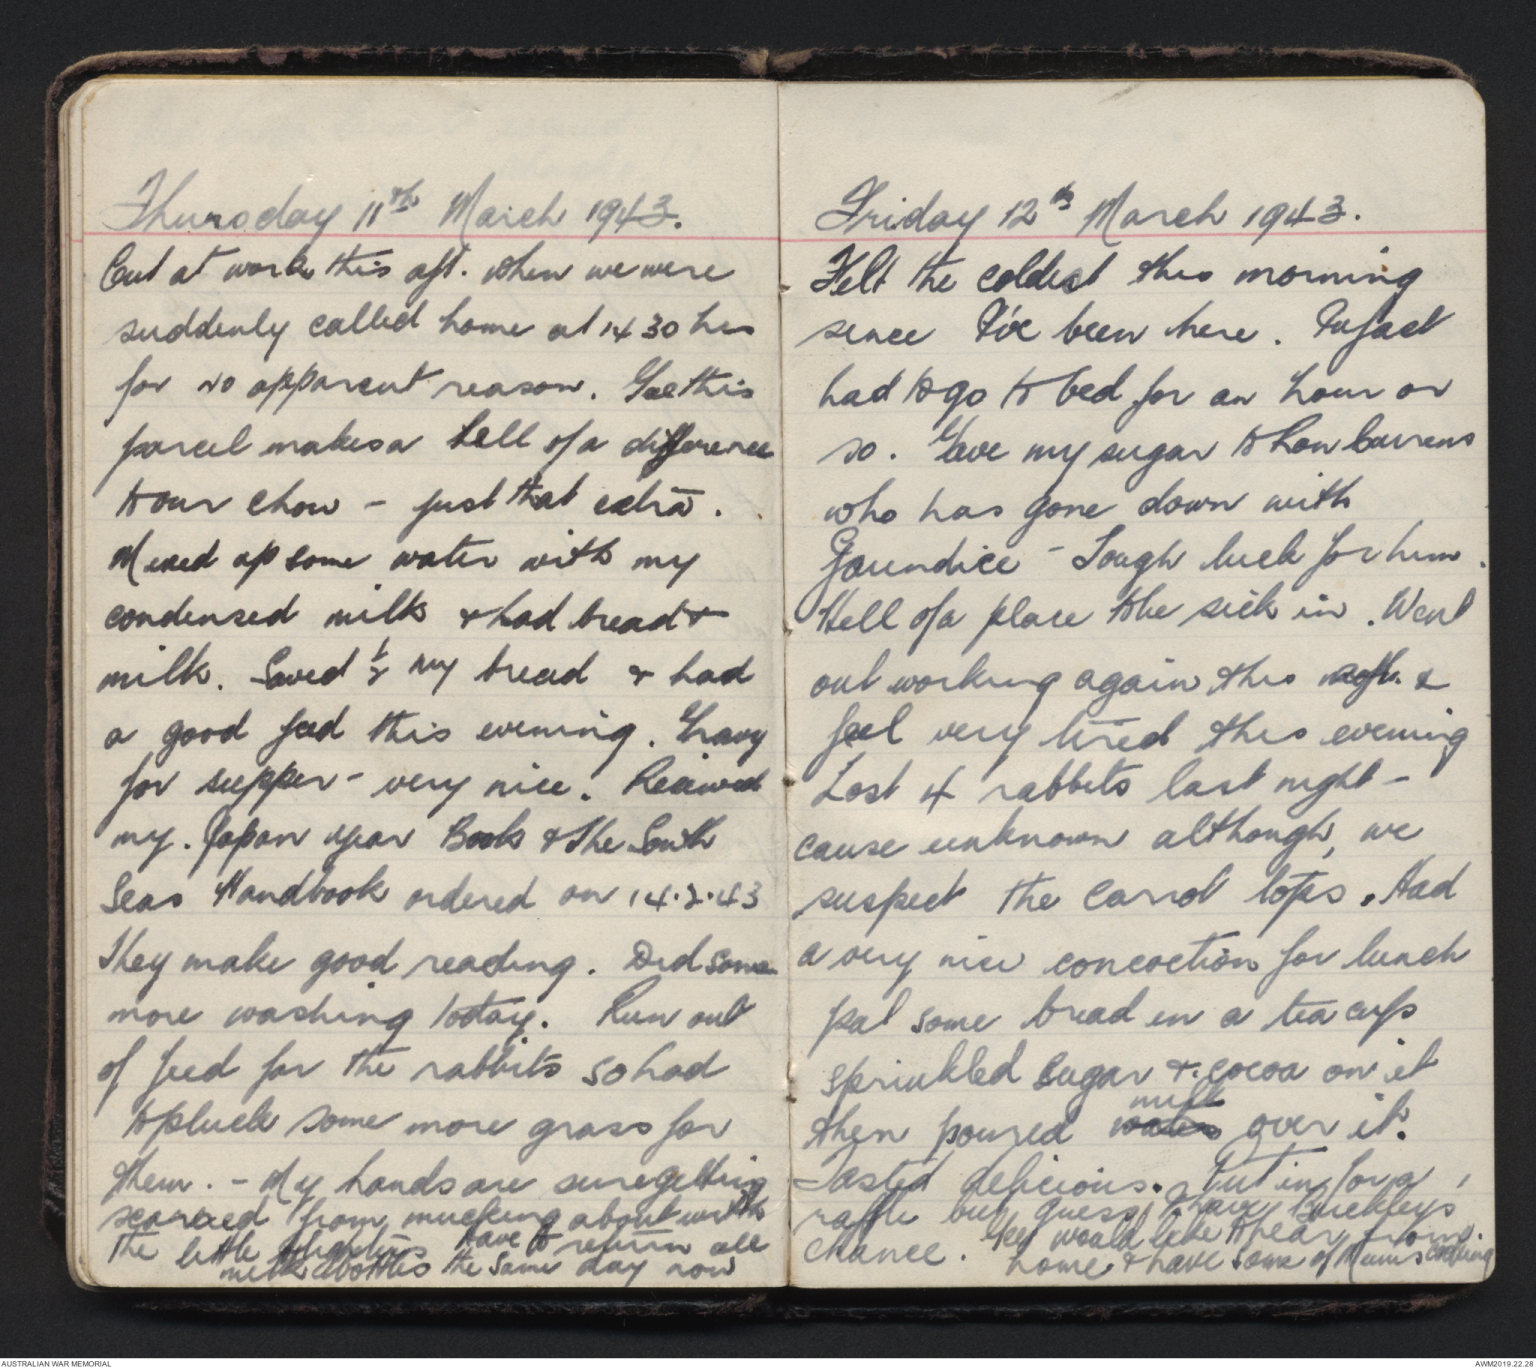 Thursday 11th March 1943.
Out at work this aft. when we were
suddenly called home at 1430 hrs
for no apparent reason. Gee this
parcel makes a hell of a difference
to our chow - just that extra.
Mixed up some water with my
condensed milk & had bread &
milk. Saved ½ my bread & had
a good feed this evening. Gravy
for supper - very nice. Received
my. Japan year Book & the South
Seas Handbook ordered on 14.2.43
They make good reading. Did some
more washing today. Run out
of feed for the rabbits so had
to pluck some more grass for
them. - My hands are sure getting
scarred from mucking about with
the little blighters Have to return all
milk bottles the same day now
Friday 12th March 1943.
Felt the coldest this morning
since I've been here. Infact
had to go to bed for an hour or
so. Gave my sugar to
who has gone down with
Jaundice - Tough luck for him.
Hell of a place to be sick in. Went
out working again this aft. &
feel very tired this evening
Lost 4 rabbits last night -
cause unknown although, we
suspect the carrot tops. Had
a very nice concoction for lunch
put some bread in a tea cup
sprinkled sugar & cocoa on it
milk
then poured water over it.
Tasted delicious. Put in for a
raffle but guess I have Buckleys
chance. Gee would like to hear from
home & have some of Mum's cooking
AUSTRALIAN WAR MEMORIAL
AWM2019.22.28